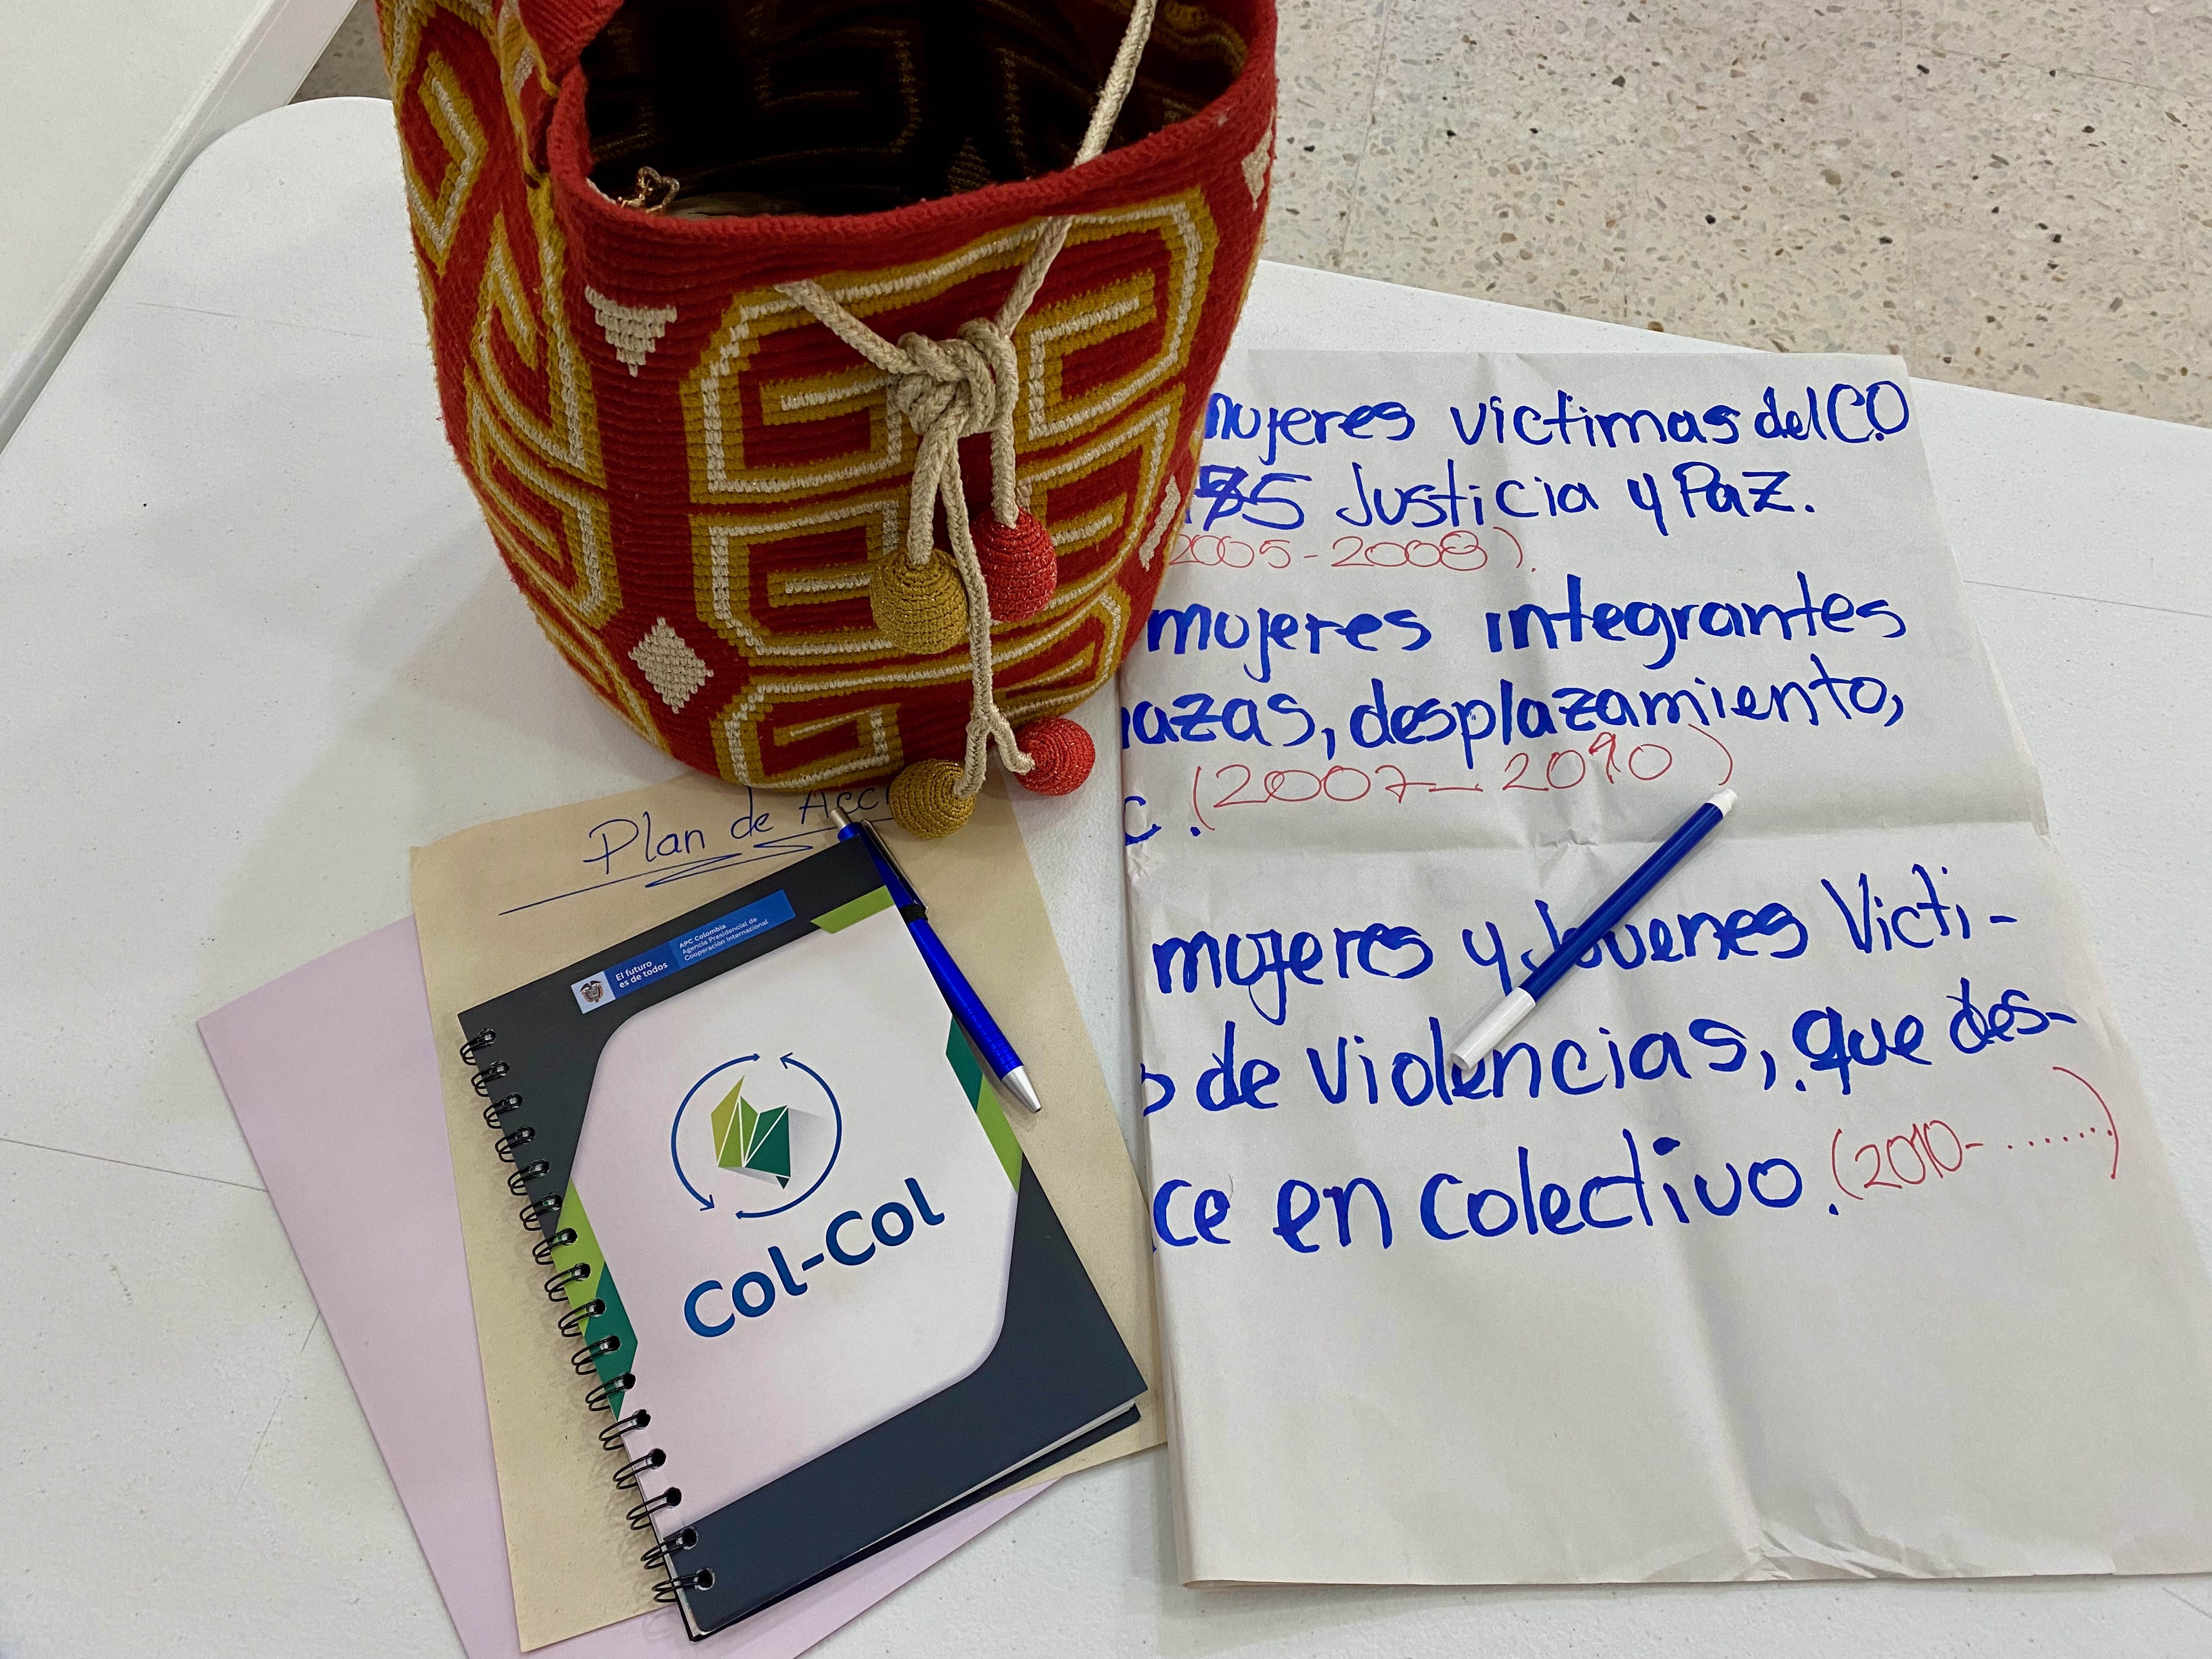 mujeres victimas del C.O
975 Justicia y Paz.
2005-2008).
mujeres integrantes
nazas, desplazamiento,
c. (2007-2010)
mujeres y Jovenes Victi-
o de violencias, que des-
ce en colectivo. (2010- .......)
Plan de Acci
El futuro
es de todos
APC Colombia
Agencia Presidencial de
Cooperación Internacional
Col-Col